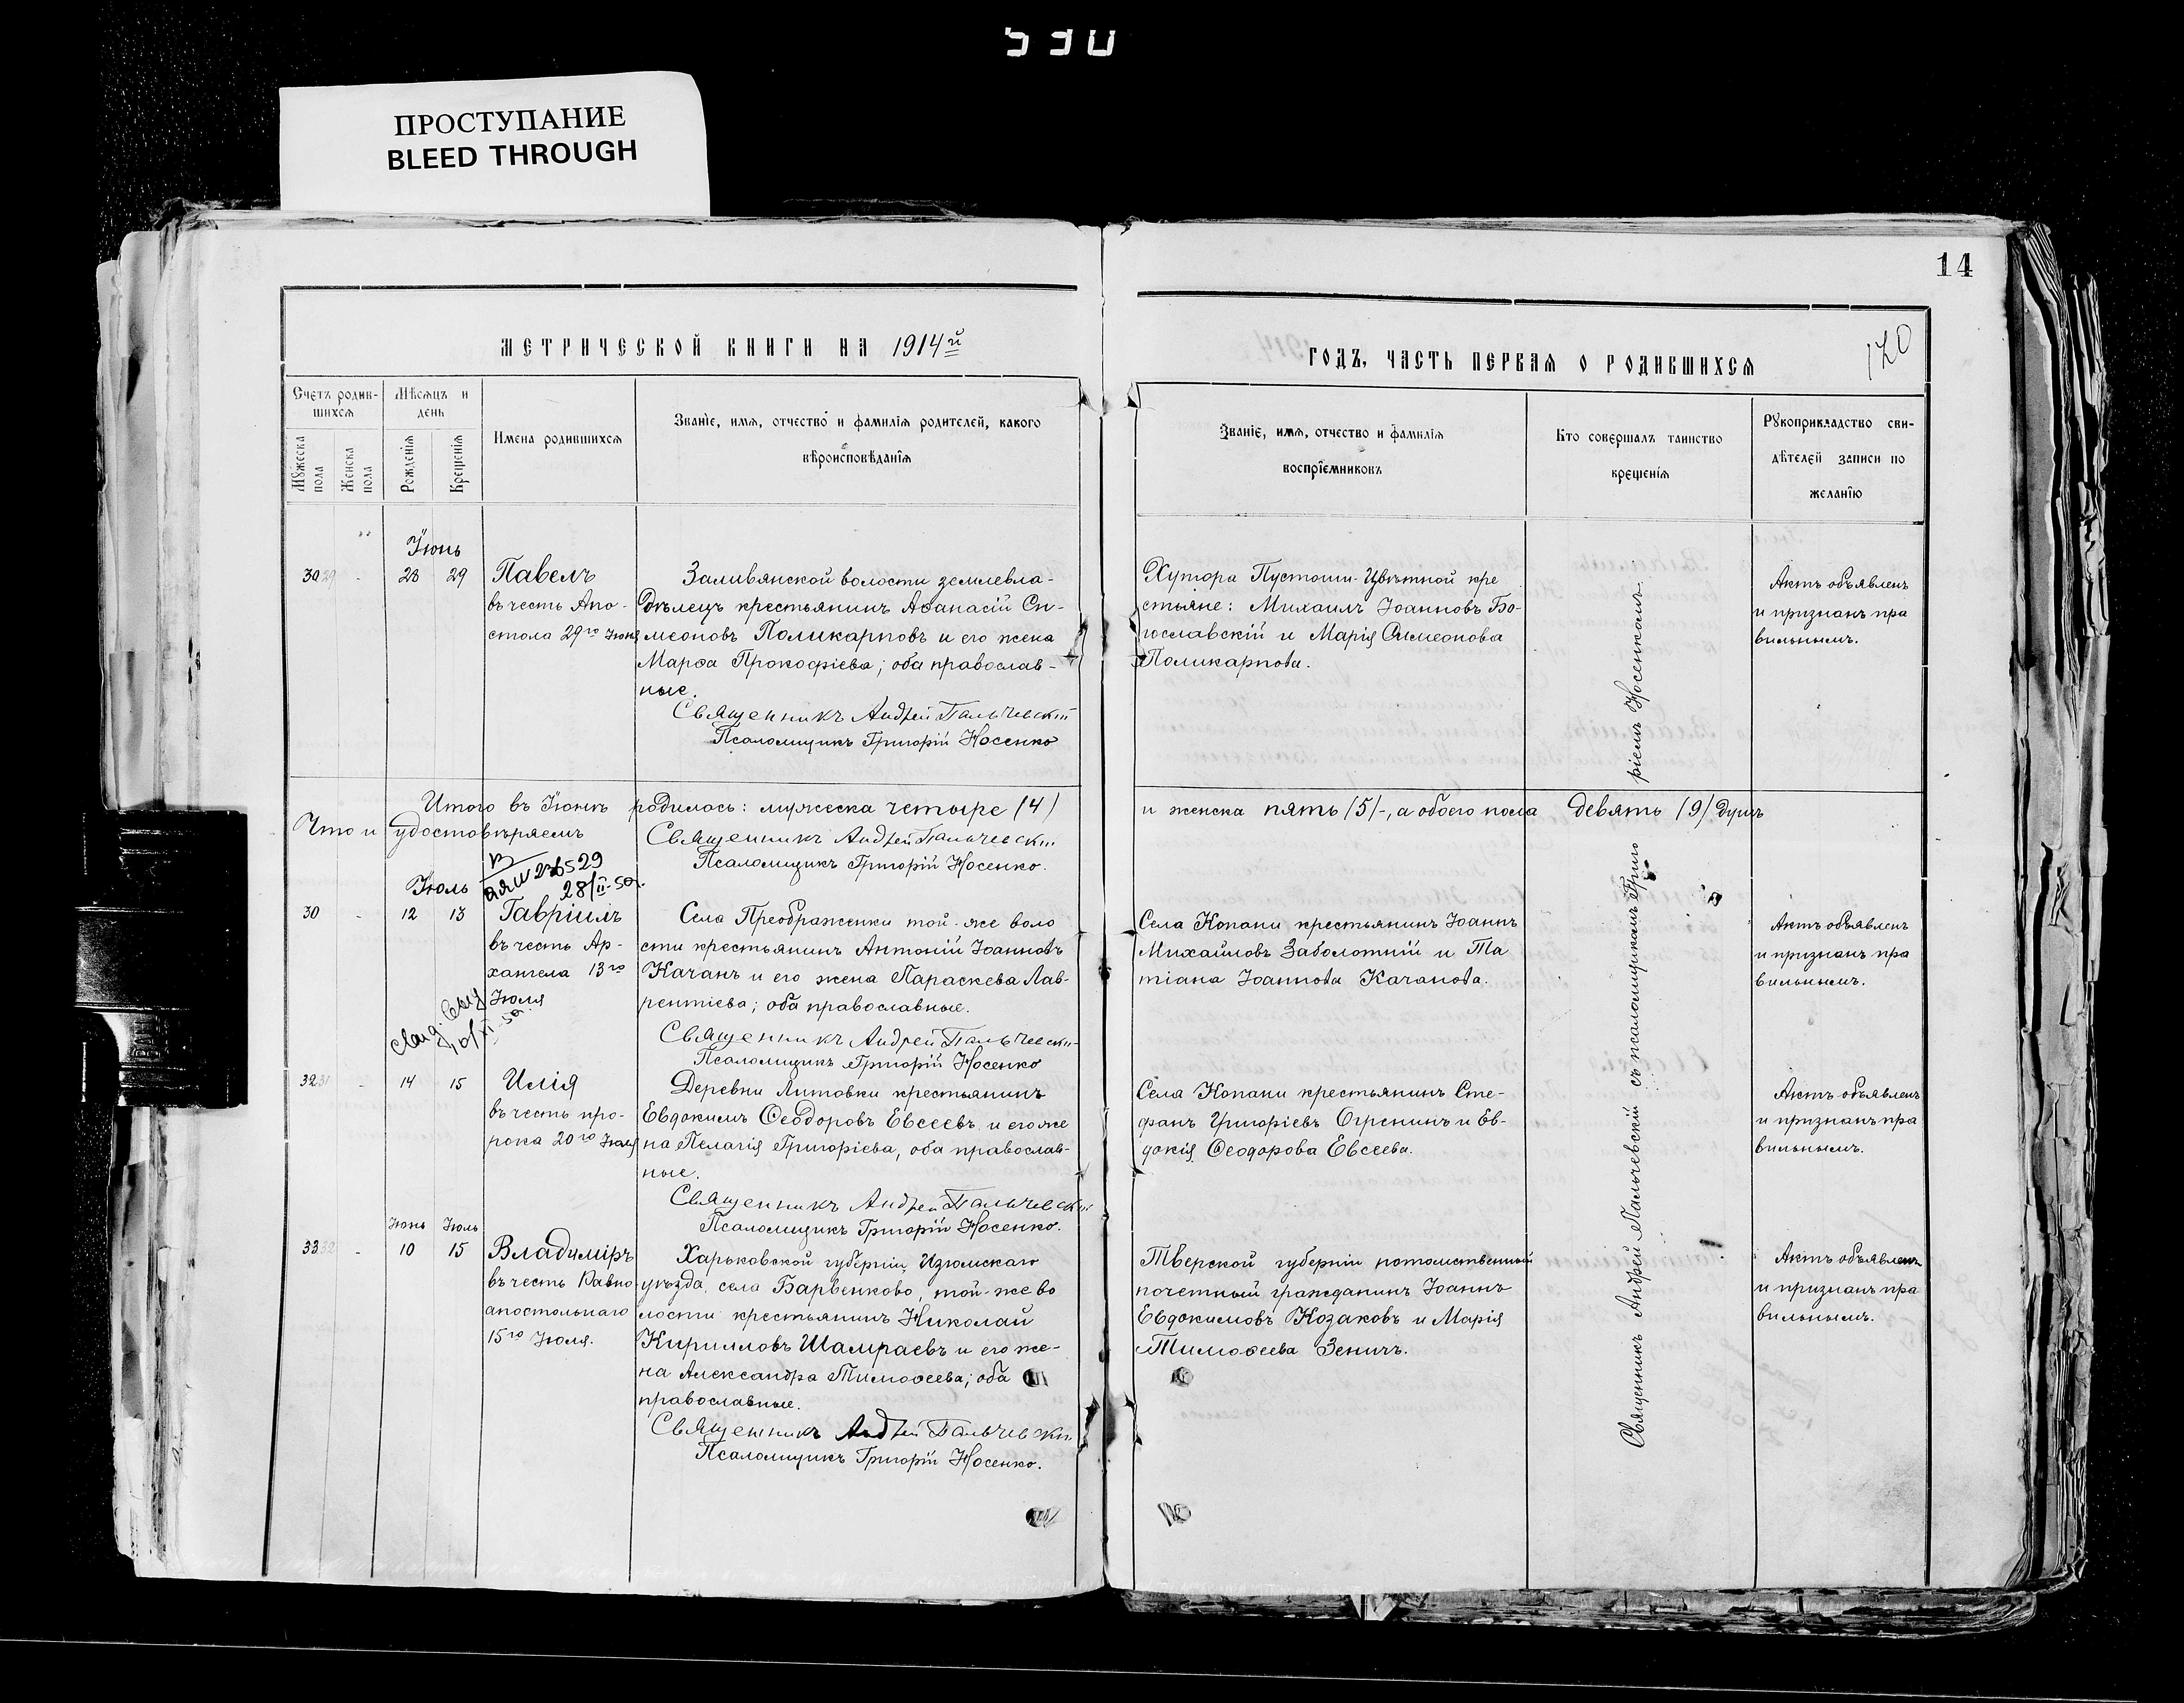 530
ПРОСТУПАНИЕ
BLEED THROUGH
14
МЕТРИЧЕСКОЙ КНИГИ НА 1914й
ГОДЪ, ЧАСТЬ ПЕРВАЯ О РОДИВШИХСЯ
120
Счетъ родив-
шихся
Мѣсяцъ и
день
Мужеска
пола
Женска
пола
Рожденія
Крещенія
Имена родившихся
Званіе, имя, отчество и фамилія родителей, какого
вѣроисповѣданія
Званіе, имя, отчество и фамилія
воспріемниковъ
Кто совершалъ таинство
крещенія
Рукоприкладство сви-
дѣтелей записи по
желанію
Іюнь
30 29 - 28 29 Павелъ
въ честь Апо-
стола 29го Іюня
Заливянской волости землевла-
дѣлецъ крестьянинъ Аѳанасій Си-
меоновъ Поликарповъ и его жена
Марѳа Прокофіева; оба православ-
ные.
Священникъ Андрей Пальчевскій
Псаломщикъ Григорій Носенко
Хутора Пустоши-Цвѣтной кре
стьяне: Михаилъ Іоанновъ Бо-
гославскій и Марія Симеонова
Поликарпова.
Актъ объявленъ
и признанъ пра
вильнымъ.
Итого въ Іюнѣ родилось: мужеска четыре (4) и женска пять (5)-, а обоего пола девять (9) душъ
Что и удостовѣряемъ
Священникъ Андрей Пальчевскій
Псаломщикъ Григорій Носенко.
28/II-50.
Іюль
30 - 12 13 Гавріилъ
въ честь Ар-
хангела 13го
Іюля
Села Преображенки той-же воло
сти крестьянинъ Антоній Іоанновъ
Качанъ и его жена Параскева Лав-
рентіева; оба православные.
Священникъ Андрей Пальчевскій
Псаломщикъ Григорій Носенко
Села Копани крестьянинъ Іоаннъ
Михайловъ Заболотній и Та
тіана Іоаннова Качанова.
Актъ объявленъ
и признанъ пра
вильнымъ.
32 31 - 14 15 Илія
въ честь про-
рока 20го Іюля
Деревни Литовки крестьянинъ
Евдокимъ Ѳеодоровъ Евсеевъ и его же
на Пелагія Григоріева, оба православ-
ные.
Священникъ Андрей Пальчевскій
Псаломщикъ Григорій Носенко.
Села Копани крестьянинъ Сте-
фанъ Григоріевъ Огренинъ и Ев-
докія Ѳеодорова Евсеева.
Актъ объявленъ
и признанъ пра
вильнымъ.
Іюнь Іюль
33 32 - 10 15 Владиміръ
въ честь Равно
апостольнаго
15го Іюля.
Харьковской губерніи Изюмскаго
уѣзда, села Барвенково, той-же во
лости крестьянинъ Николай
Кирилловъ Шампаевъ и его же-
на Александра Тимоѳеева; оба
православные.
Священникъ Андрей Пальчевскій
Псаломщикъ Григорій Носенко.
Тверской губерніи потомственный
почетный гражданинъ Іоаннъ
Евдокимовъ Козаковъ и Марія
Тимоѳеева Зеничъ.
Актъ объявленъ
и признанъ пра
вильнымъ.
Священникъ Андрей Пальчевскій съ псаломщикомъ Григо
ріемъ Носенкомъ